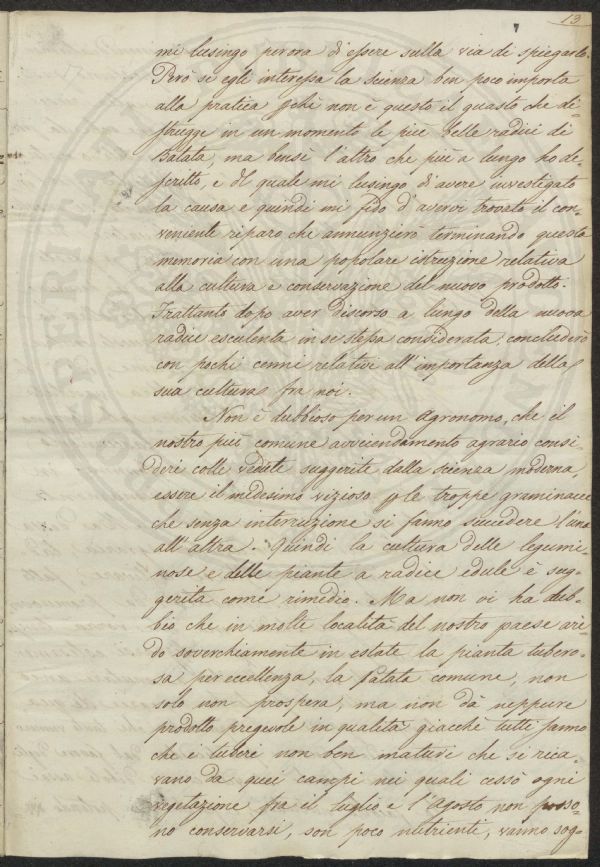 13
mi lusingo per ora d'essere sulla via di spiegarlo.
Però se egli interessa la scienza ben poco importa
alla pratica, chè non è questo il guasto che di-
strugge in un momento le più belle radici di
Batata, ma bensì l'altro che più a lungo ho de-
scritto, e del quale mi lusingo d'avere investigato
la causa e quindi mi fido d'avervi trovato il con-
veniente riparo che annunzierò terminando questa
memoria con una popolare istruzione relativa
alla cultura e conservazione del nuovo prodotto.
Frattanto dopo aver discorso a lungo della nuova
radice esculenta in se stessa considerata, concluderò
con pochi cenni relativi all'importanza della
sua cultura fra noi.
Non è dubbioso per un Agronomo, che il
nostro più comune avvicendamento agrario consi-
deri colle vedute suggerite dalla scienza moderna,
essere il medesimo vizioso p le troppe graminacee
che senza interruzione si fanno succedere l'una
all'altra. Quindi la cultura delle legumi-
nose e delle piante a radice edule è sug-
gerita come rimedio. Ma non vi ha dub-
bio che in molte località del nostro paese ari-
do soverchiamente in estate la pianta tubero-
sa per eccellenza, la Patata comune, non
solo non prospera, ma non dà neppure
prodotto pregevole in qualità giacchè tutti sanno
che i tuberi non ben maturi che si rica-
vano da quei campi nei quali cessò ogni
vegetazione fra il luglio e l'Agosto non posso-
no conservarsi, son poco nutrienti, vanno sog-